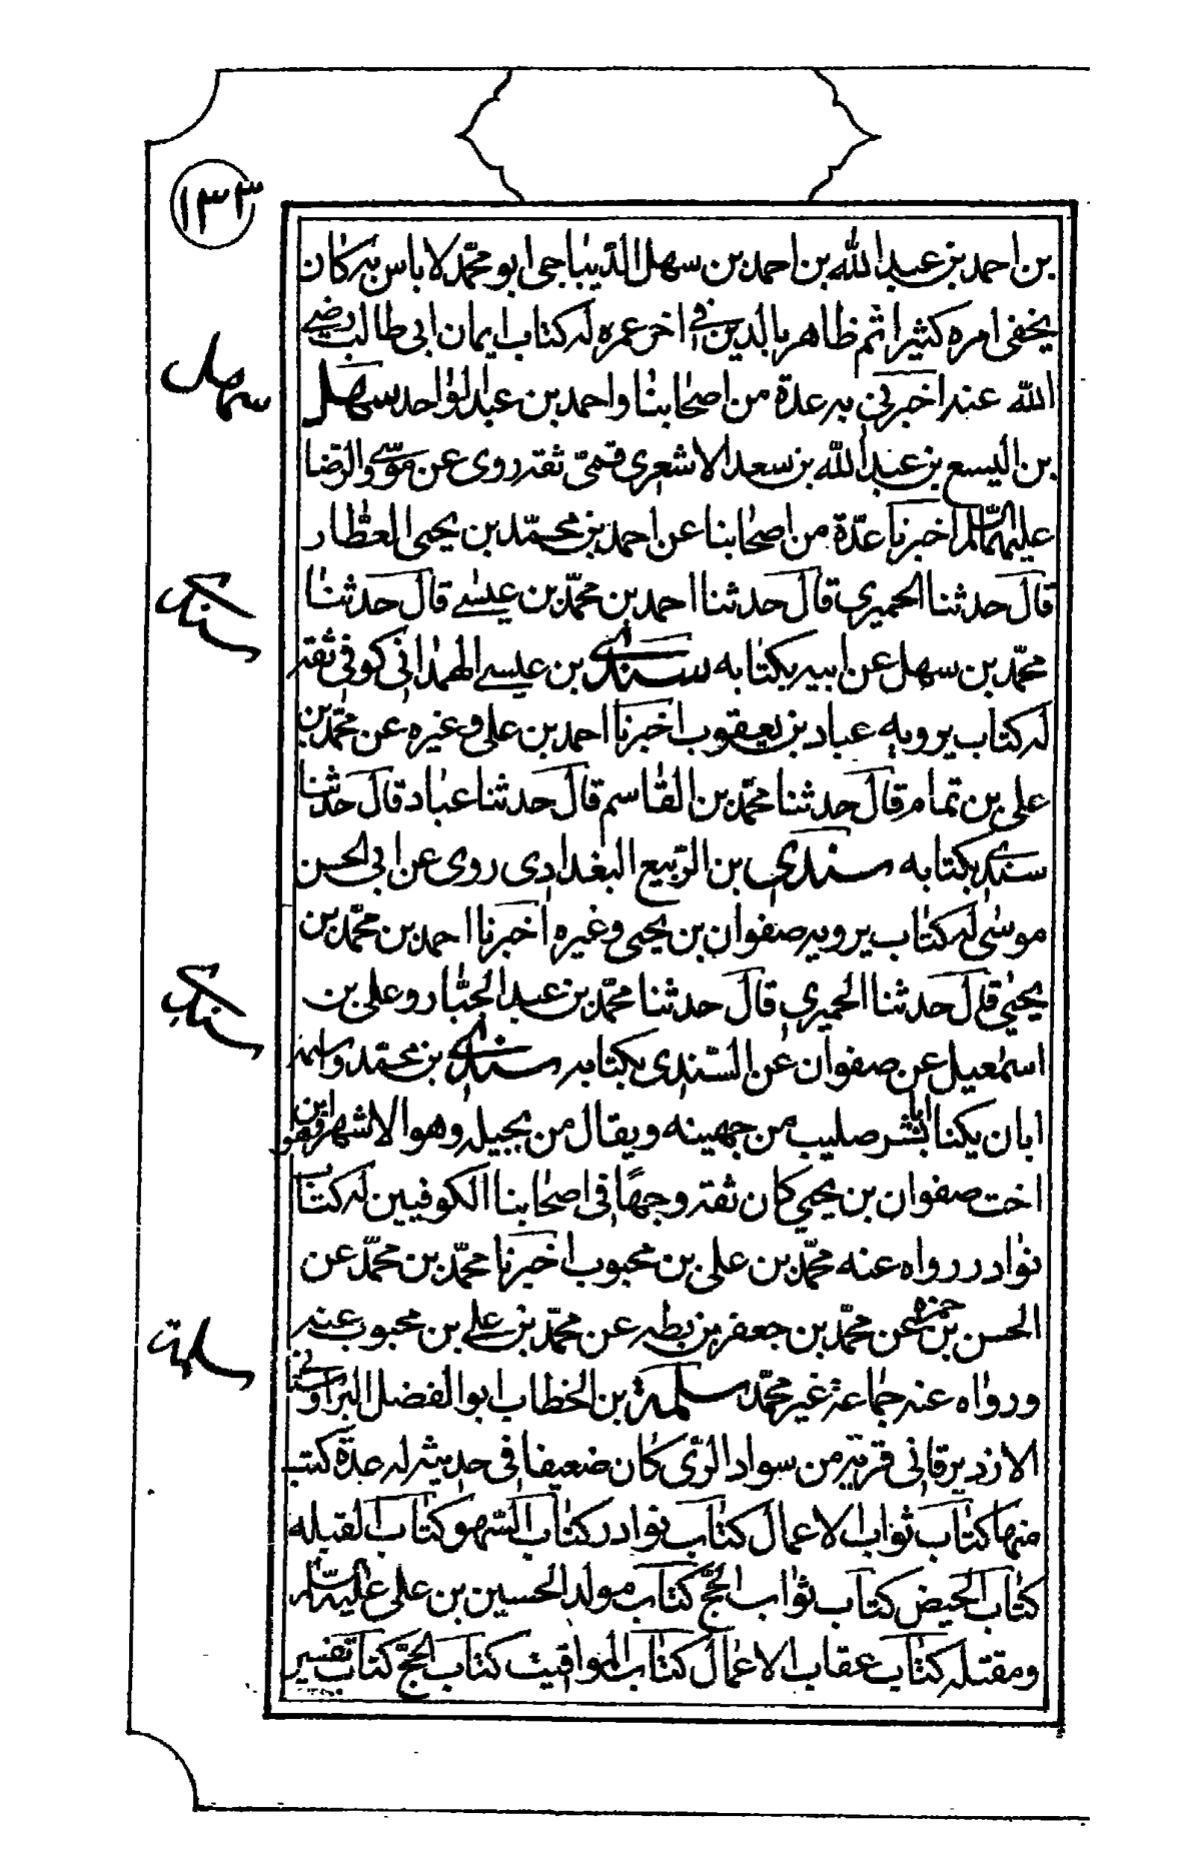 ١٣٣
بن احمد بن عبد الله بن احمد بن سهل الديباجى ابو محمّد لا باس به كان
يخفى امره كثيرا ثم ظاهر بالدين فى اخر عمره له كتاب ايمان ابى طالب رضى
الله عنه اخبرنى به عدة من اصحابنا واحمد بن عبد الواحد سهل
بن اليسع بن عبد الله بن سعد الاشعرى قمىّ ثقه روى عن موسى والرّضا
عليهما السّلم اخبرنا عدّة من اصحابنا عن احمد بن محمّد بن يحيى العطّار
قال حدثنا الحميرى قال حدثنا احمد بن محمّد بن عيسى قال حدثنا
محمّد بن سهل عن ابيه بكتابه سندى بن عيسى الهمدانى كوفى ثقه
له كتاب يرويه عباد بن يعقوب اخبرنا احمد بن على وغيره عن محمّد بن
على بن تمام قال حدثنا محمّد بن القاسم قال حدثنا عباد قال حدثنا
سندى بكتابه سندى بن الرّبيع البغدادى روى عن ابى الحسن
موسى له كتاب يرويه صفوان بن يحيى وغيره اخبرنا احمد بن محمّد بن
يحيى قال حدثنا الحميرى قال حدثنا محمّد بن عبد الجبّار وعلى بن
اسمعيل عن صفوان عن السّندى بكتابه سندى بن محمّد واسمه
ابان يكنا ابا بشر صليب من جهينه ويقال من بجيله وهو الاشهر وهو ابن
اخت صفوان بن يحيى كان ثقه وجهًا فى اصحابنا الكوفيين له كتاب
نوادر رواه عنه محمّد بن على بن محبوب اخبرنا محمّد بن محمّد عن
الحسن بن حمزه عن محمّد بن جعفر بن بطه عن محمّد بن على بن محبوب عنه
ورواه عنه جماعة غير محمّد سلمة بن الخطاب ابو الفضل البراوستانى
الازدورقانى قرية من سواد الرّى كان ضعيفا فى حديثه له عدّة كتب
منها كتاب ثواب الاعمال كتاب نوادر كتاب السّهو كتاب القبله
كتاب الحيض كتاب ثواب الحجّ كتاب مولد الحسين بن على عليه السّلم
ومقتله كتاب عقاب الاعمال كتاب المواقيت كتاب الحجّ كتاب تفسير
سهل
سندى
سندى
سلمة